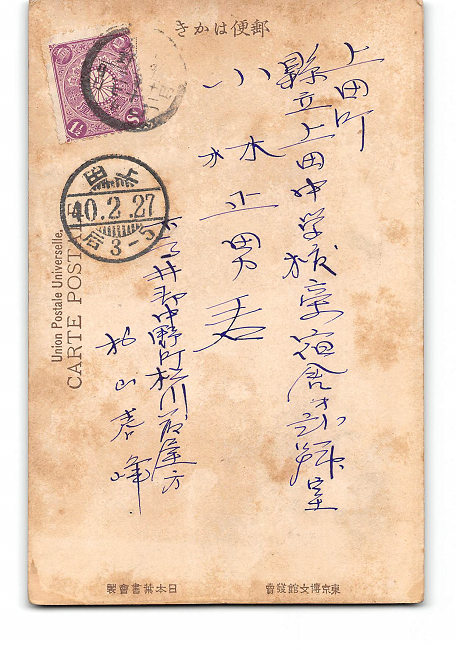 郵便はかき
上田町
縣立上田中学校寄宿舎
小林正男君
下高井郡中野町松川
春峰
上田
40.2.27
后3-5
Union Postale Universelle.
CARTE POST
東京博文館發賣
日本葉書會製